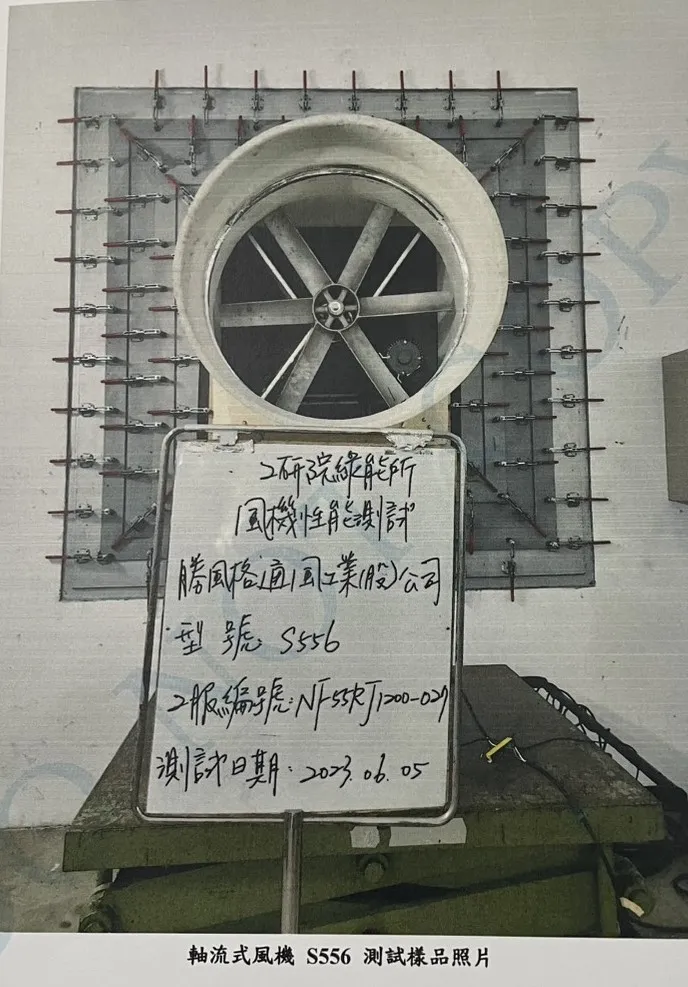 工研院綠能所
風機性能測試
勝風格通風工業(股)公司
型號: S556
工服編號: NF55RJ1200-029
測試日期: 2023.06.05
軸流式風機 S556 測試樣品照片